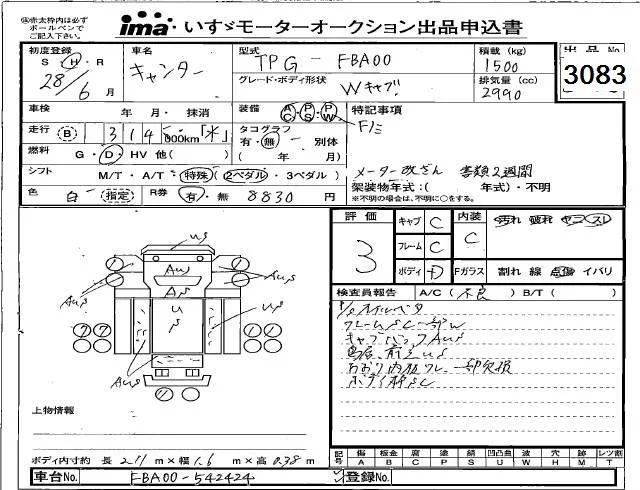 ※赤太枠内は必ず
ボールペンで
ご記入下さい。
ima いすゞモーターオークション出品申込書
初度登録 S H・R 28/6月
車名 キャンター
型式 TPG-FBA00
グレード・ボディ形状 Wキャブ
積載(kg) 1500
排気量(cc) 2990
出品No. 3083
車検 年 月・抹消
装備 AC・PS・PW
特記事項
F/ミ
走行 B 1314 000km「*」
タコグラフ 有・無 別体
( 年 月)
燃料 G・D・HV 他( )
メーター改ざん 書類2週間
シフト M/T・A/T・特殊(2ペダル・3ペダル)
架装物年式:( 年式)・不明
※不明の場合は、不明に○をする。
色 白 (指定)
R券 有・無 8830円
評価 3
キャブ C
フレーム C
ボディ D
内装 C
汚れ 破れ ヤニ コゲ スレ
Fガラス 割れ 線 点傷 イバリ
検査員報告 A/C(不良)B/T( )
フレームSC一部W
キャブバックAUS
鳥居、前立US
あおり内板ワレ、一部欠損
US
AUS
AUS
AUS
AUS
AUS
上物情報
ボディ内寸約 長 2.11m×幅1.6m×高0.38m
記号 傷 板金 腐 塗 錆 凹凸凹 波 穴 跡 レツ割
A B C P S U W H M T
車台No. FBA00-542424
登録No.